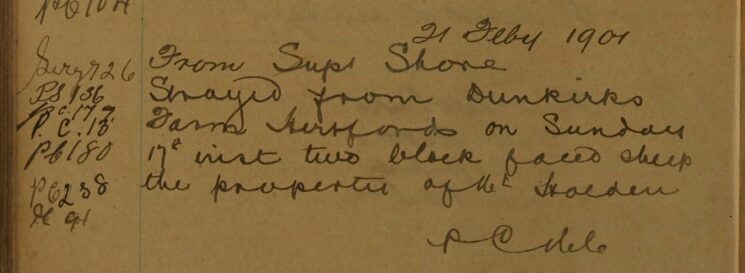 PC 104
21 Feby 1901
From Supt Shore
Strayed from Dunkirks
Farm Hertfords on Sunday
17th inst two black faced sheep
the property of Mr Holden
Serg 726
PS 136
PC 177
P.C. 13
PC 180
PC 238
91